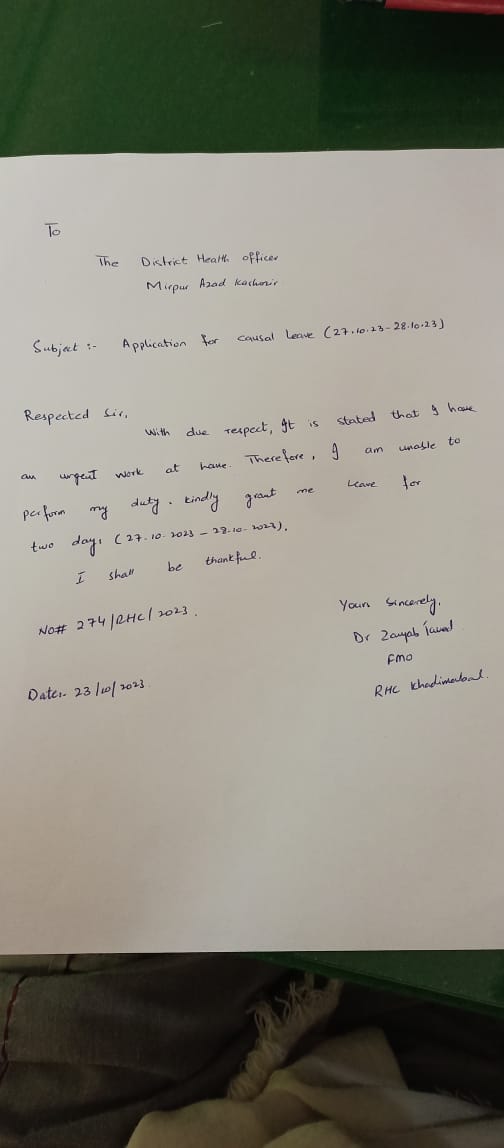 To
The District Health officer
Mirpur Azad Kashmir
Subject :- Application for causal Leave (27.10.23-28.10.23)
Respected Sir,
With due respect, It is stated that I have
an urgent work at home. Therefore, I am unable to
perform my duty. kindly grant me Leave for
two days (27.10.2023 - 28.10.2023).
I shall be thankful.
No# 274/RHC/2023.
Date:- 23/10/2023
Yours Sincerely,
Dr Zanyab
FMO
RHC